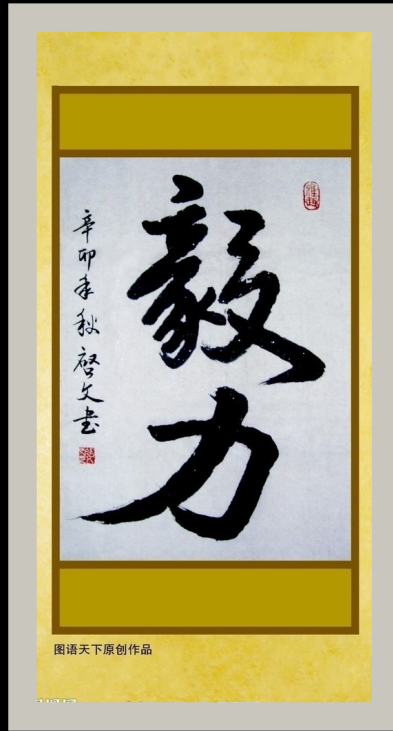 毅力
辛卯年秋 启文书
图语天下原创作品